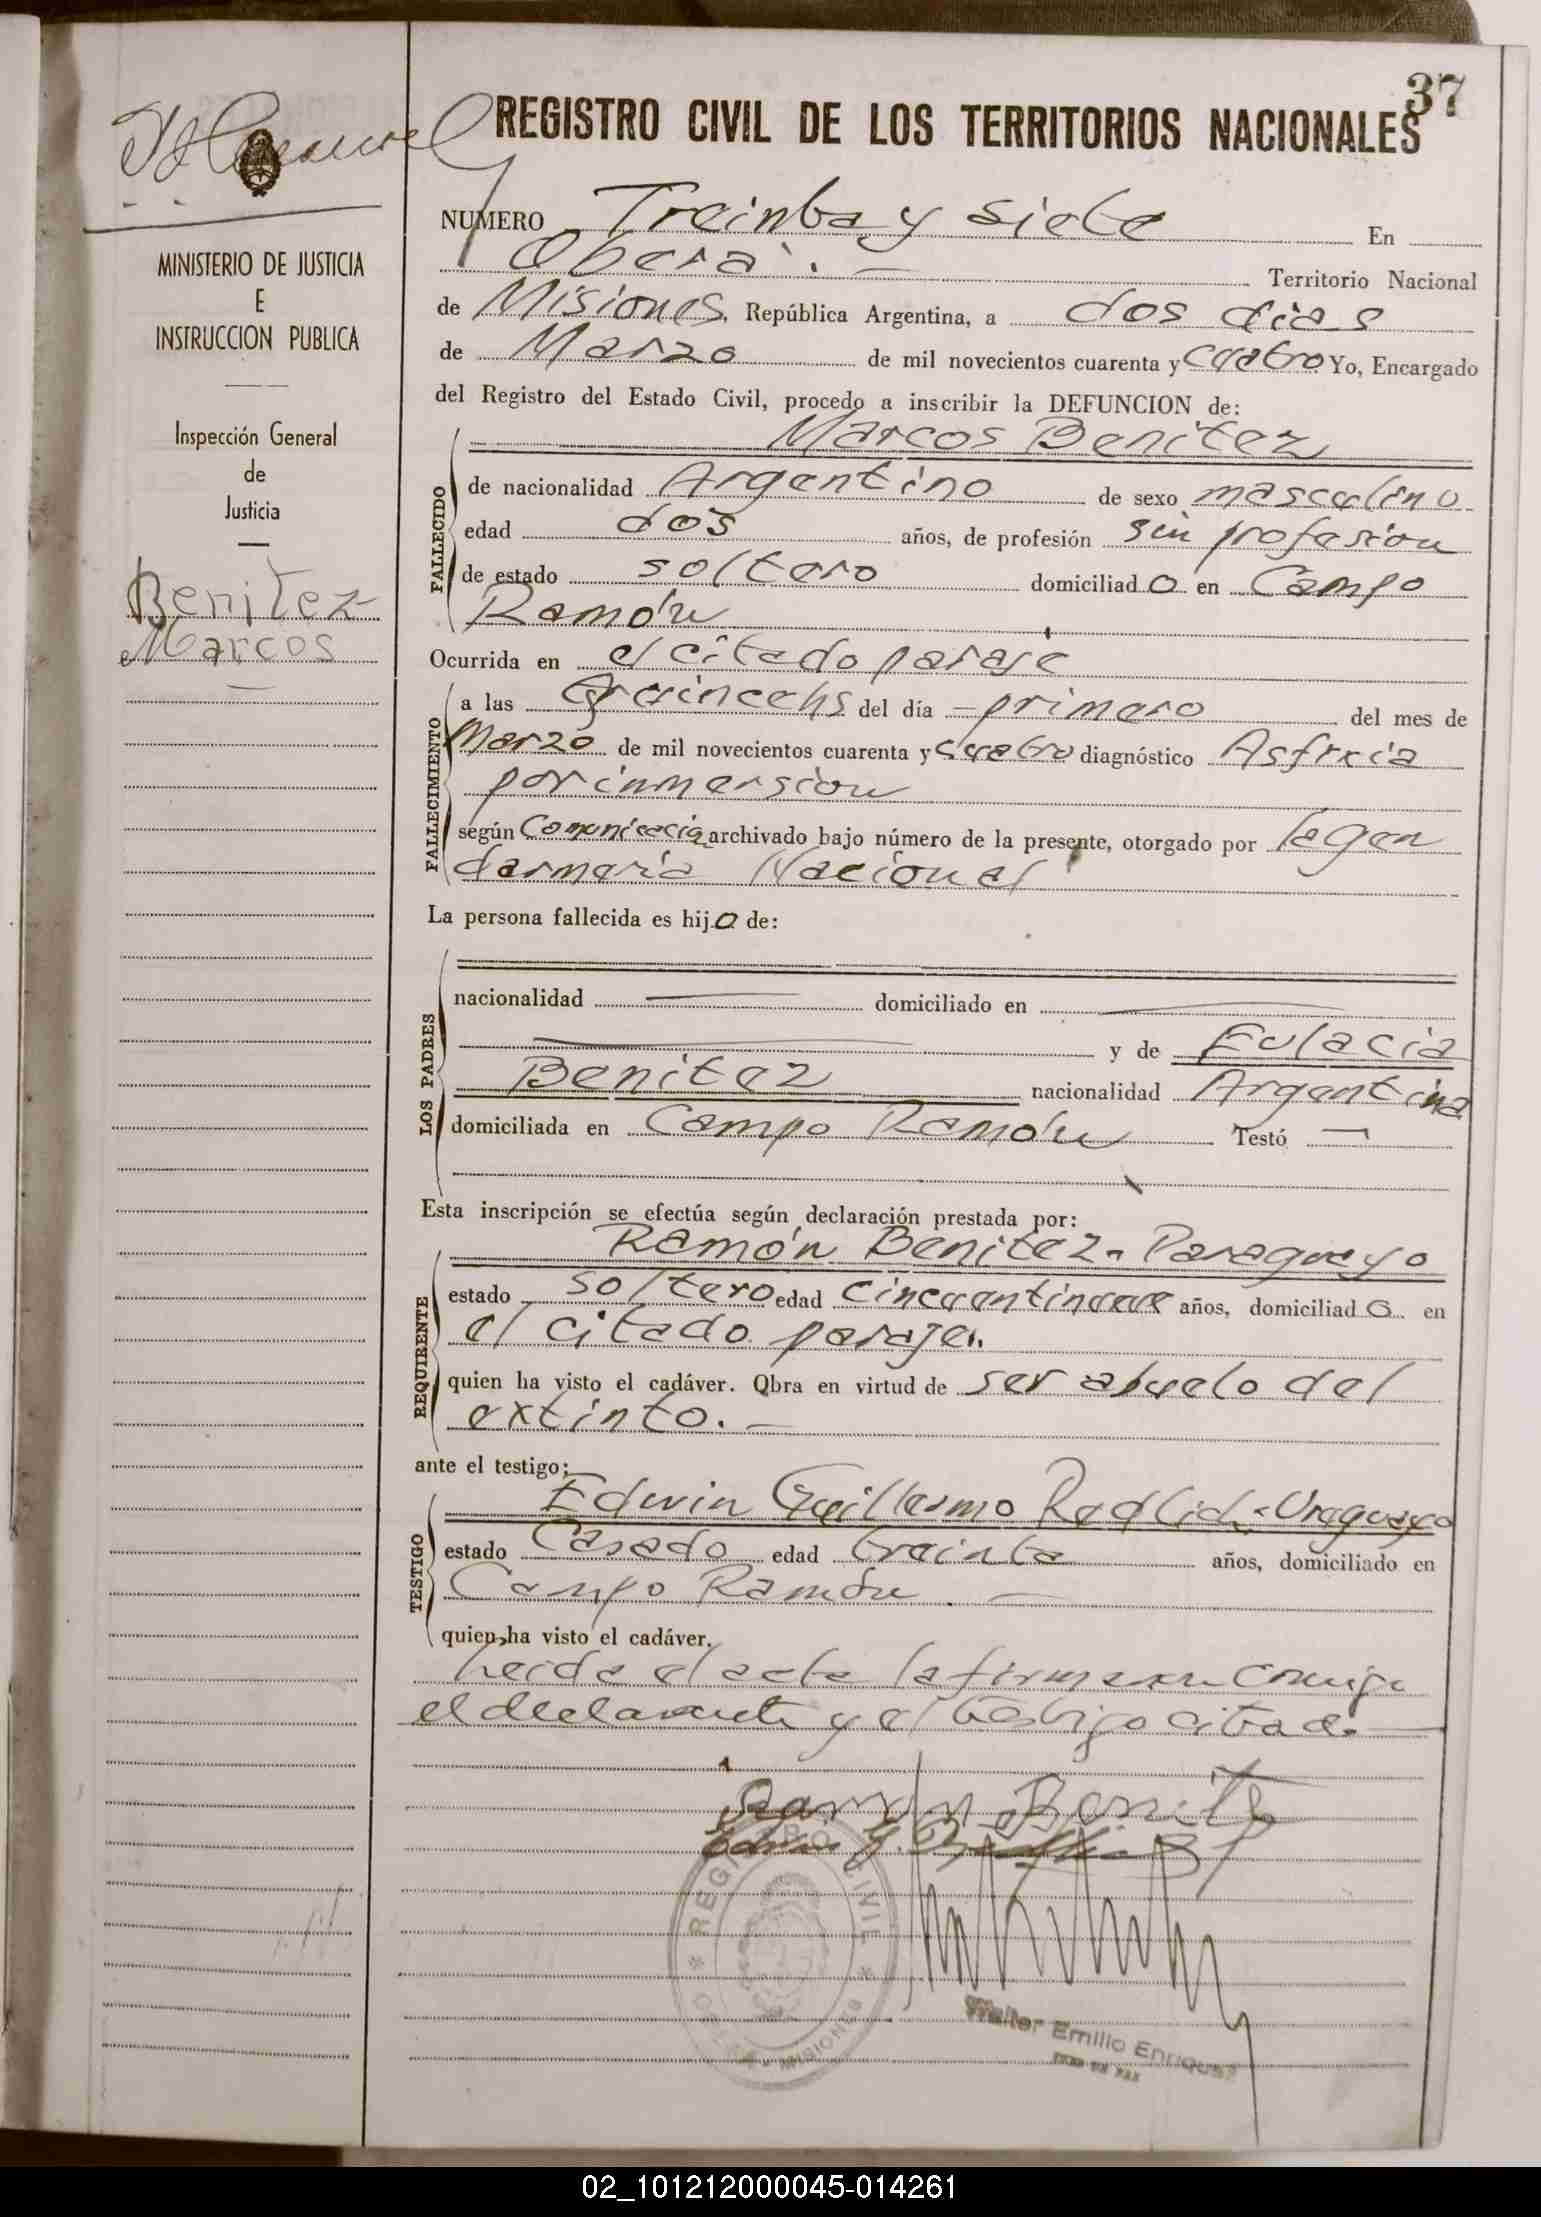 37
REGISTRO CIVIL DE LOS TERRITORIOS NACIONALES
MINISTERIO DE JUSTICIA
E
INSTRUCCION PUBLICA
Inspección General
de
Justicia
Benitez
Marcos
NUMERO Treinta y siete En
Oberá.- Territorio Nacional
de Misiones, República Argentina, a dos dias
de Marzo de mil novecientos cuarenta y cuatro Yo, Encargado
del Registro del Estado Civil, procedo a inscribir la DEFUNCION de:
Marcos Benitez
FALLECIDO
de nacionalidad Argentino de sexo masculino
edad dos años, de profesión sin profesion
de estado soltero domiciliado en Campo
Ramón
Ocurrida en el citado paraje
FALLECIMIENTO
a las quincehs del día - primero del mes de
Marzo de mil novecientos cuarenta y cuatro diagnóstico Asfixia
por inmersion
según Comunicacion archivado bajo número de la presente, otorgado por la gen
darmeria Nacional
La persona fallecida es hijo de:
LOS PADRES
nacionalidad domiciliado en
y de Eulacia
Benitez nacionalidad Argentina
domiciliada en Campo Ramón Testó
Esta inscripción se efectúa según declaración prestada por:
Ramón Benitez - Paraguayo
REQUIRENTE
estado soltero edad cincuentinueve años, domiciliado en
el citado paraje.
quien ha visto el cadáver. Obra en virtud de ser abuelo del
extinto.-
ante el testigo;
Edwin Guillermo Redlich - Uruguayo
TESTIGO
estado Casado edad treinta años, domiciliado en
Campo Ramón.-
quien ha visto el cadáver.
Leida el acta la firmaron conmigo
el declarante y el testigo citado
Ramón Benitez
REGISTRO CIVIL
MISIONES
Walter Emilio Enriquez
JUEZ DE PAZ
02_101212000045-014261